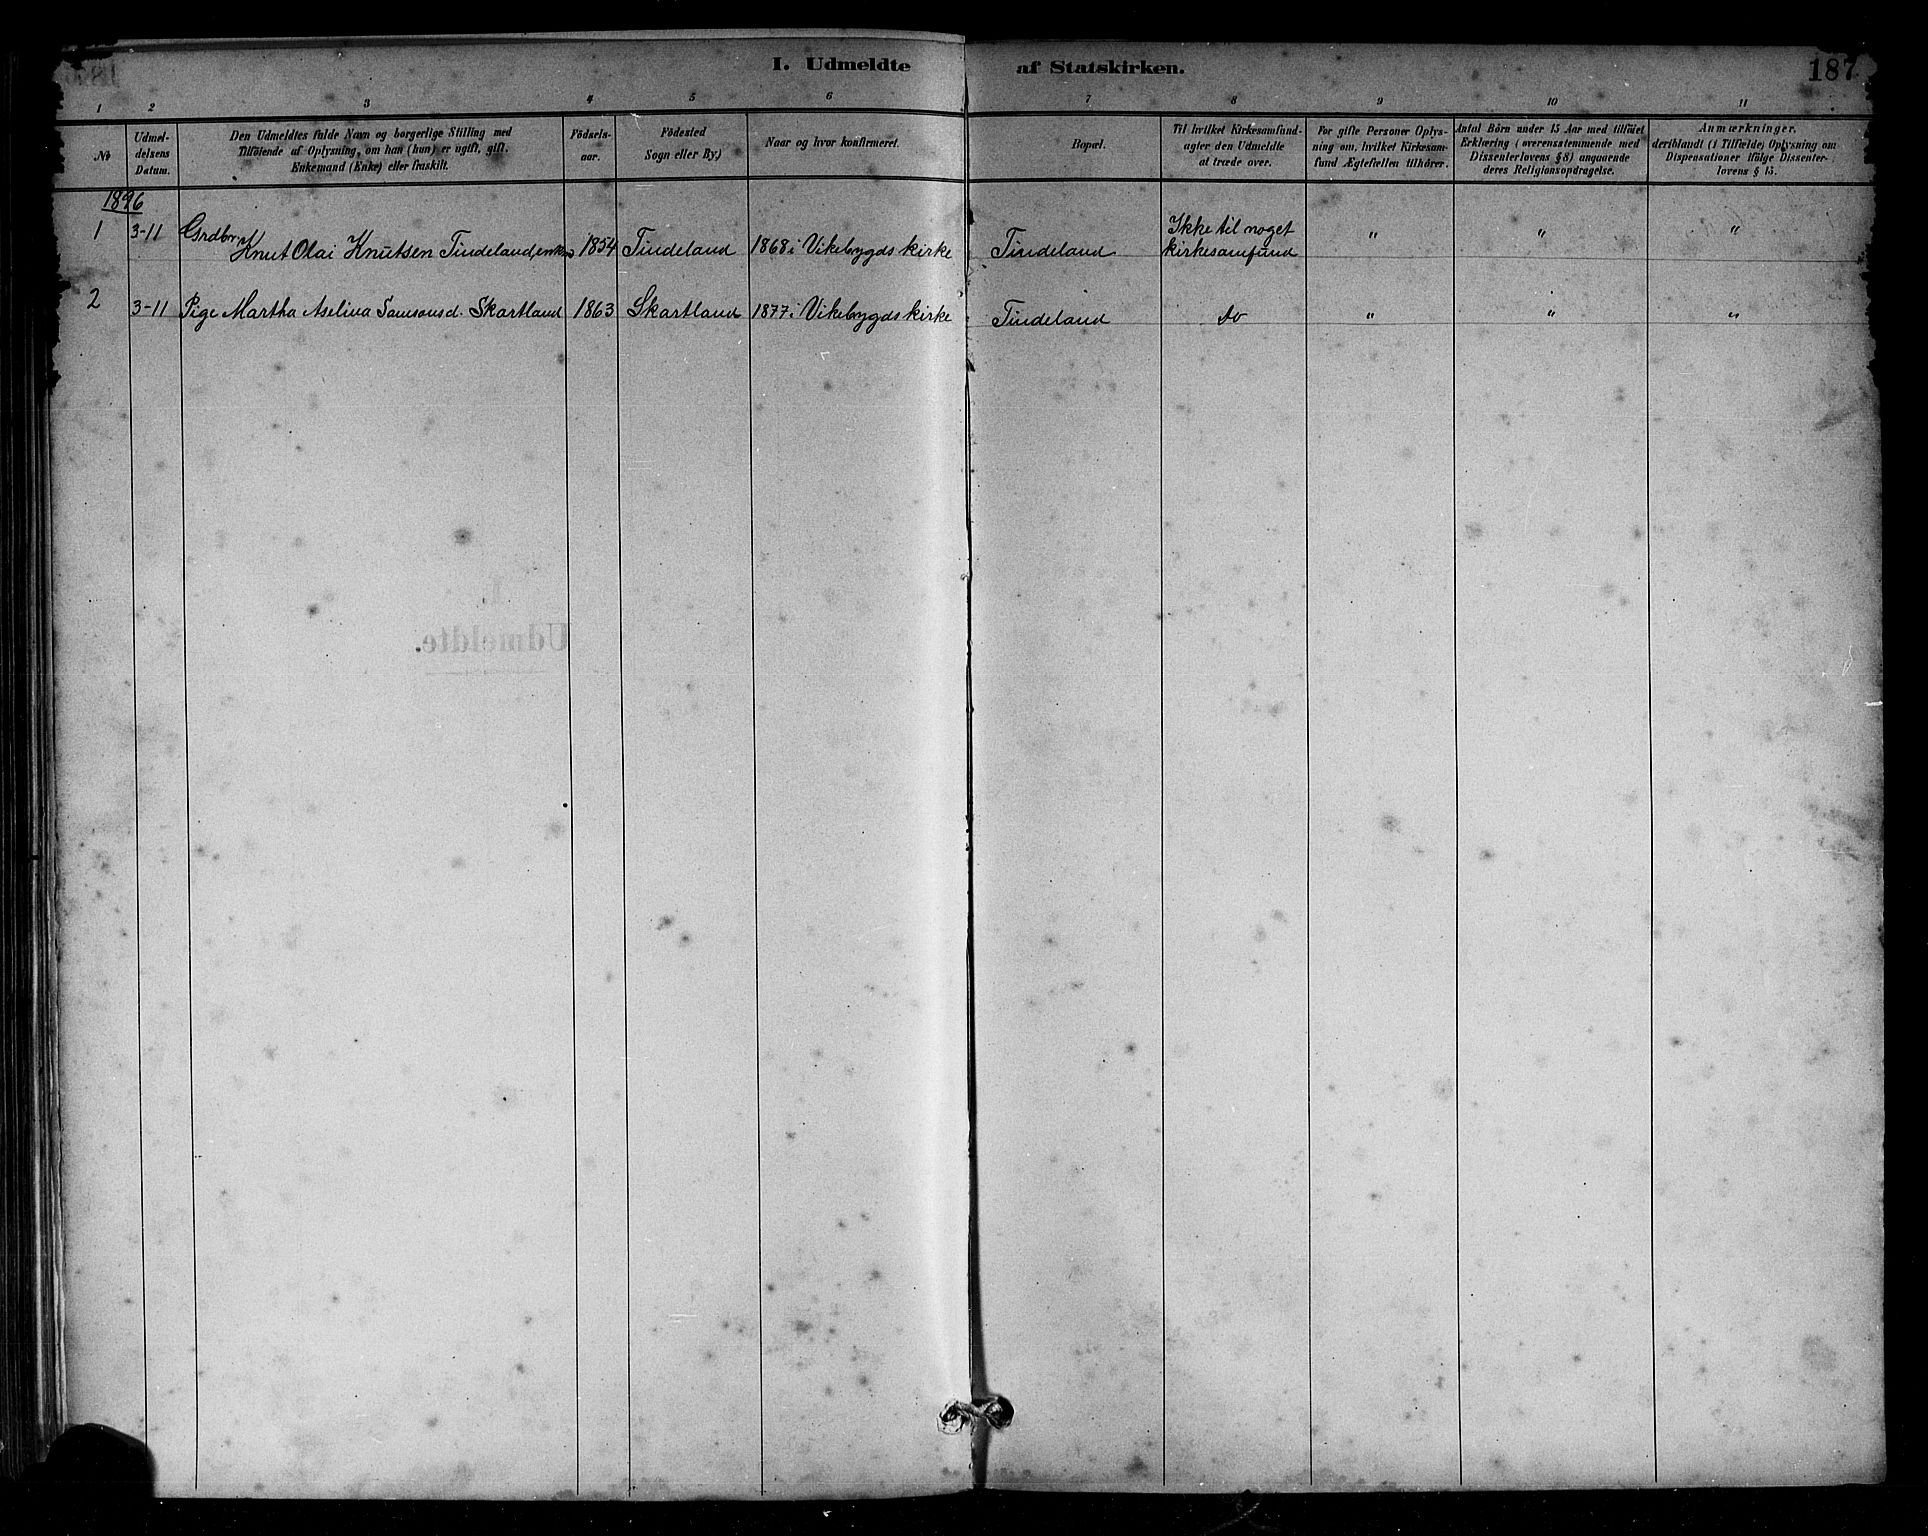 I. Udmeldte af Statskirken.
187
1 2 3 4 5 6 7 8 9 10 11
No
Udmel-
delsens
Datum.
Den Udmeldtes fulde Navn og borgerlige Stilling med
Tilföiende af Oplysning, om han (hun) er ugift, gift,
Enkemand (Enke) eller fraskilt.
Födsels-
aar.
Födested
Sogn eller By.)
Naar og hvor konfirmeret.
Bopæl.
Til hvilket Kirkesamfund-
agter den Udmeldte
at træde over.
For gifte Personer Oplys-
ning om, hvilket Kirkesam-
fund Ægtefællen tilhörer.
Antal Börn under 15 Aar med tilföiet
Erklæring (overensstemmende med
Dissenterlovens § 8) angaaende
deres Religionsopdragelse.
Anmærkninger,
deriblandt (i Tilfælde) Oplysning om
Dispensationer ifölge Dissenter-
lovens § 15.
1896
1 3-11 Grdbr. Knut Olai Knutsen Tindeland, enkm 1854 Tindeland 1868 i Vikebygds kirke Tindeland Ikke til noget
kirkesamfund " " "
2 3-11 Pige Martha Aselina Samsonsd. Skartland 1863 Skartland 1877 i Vikebygds kirke Tindeland Do " " "
I.
Udmeldte.